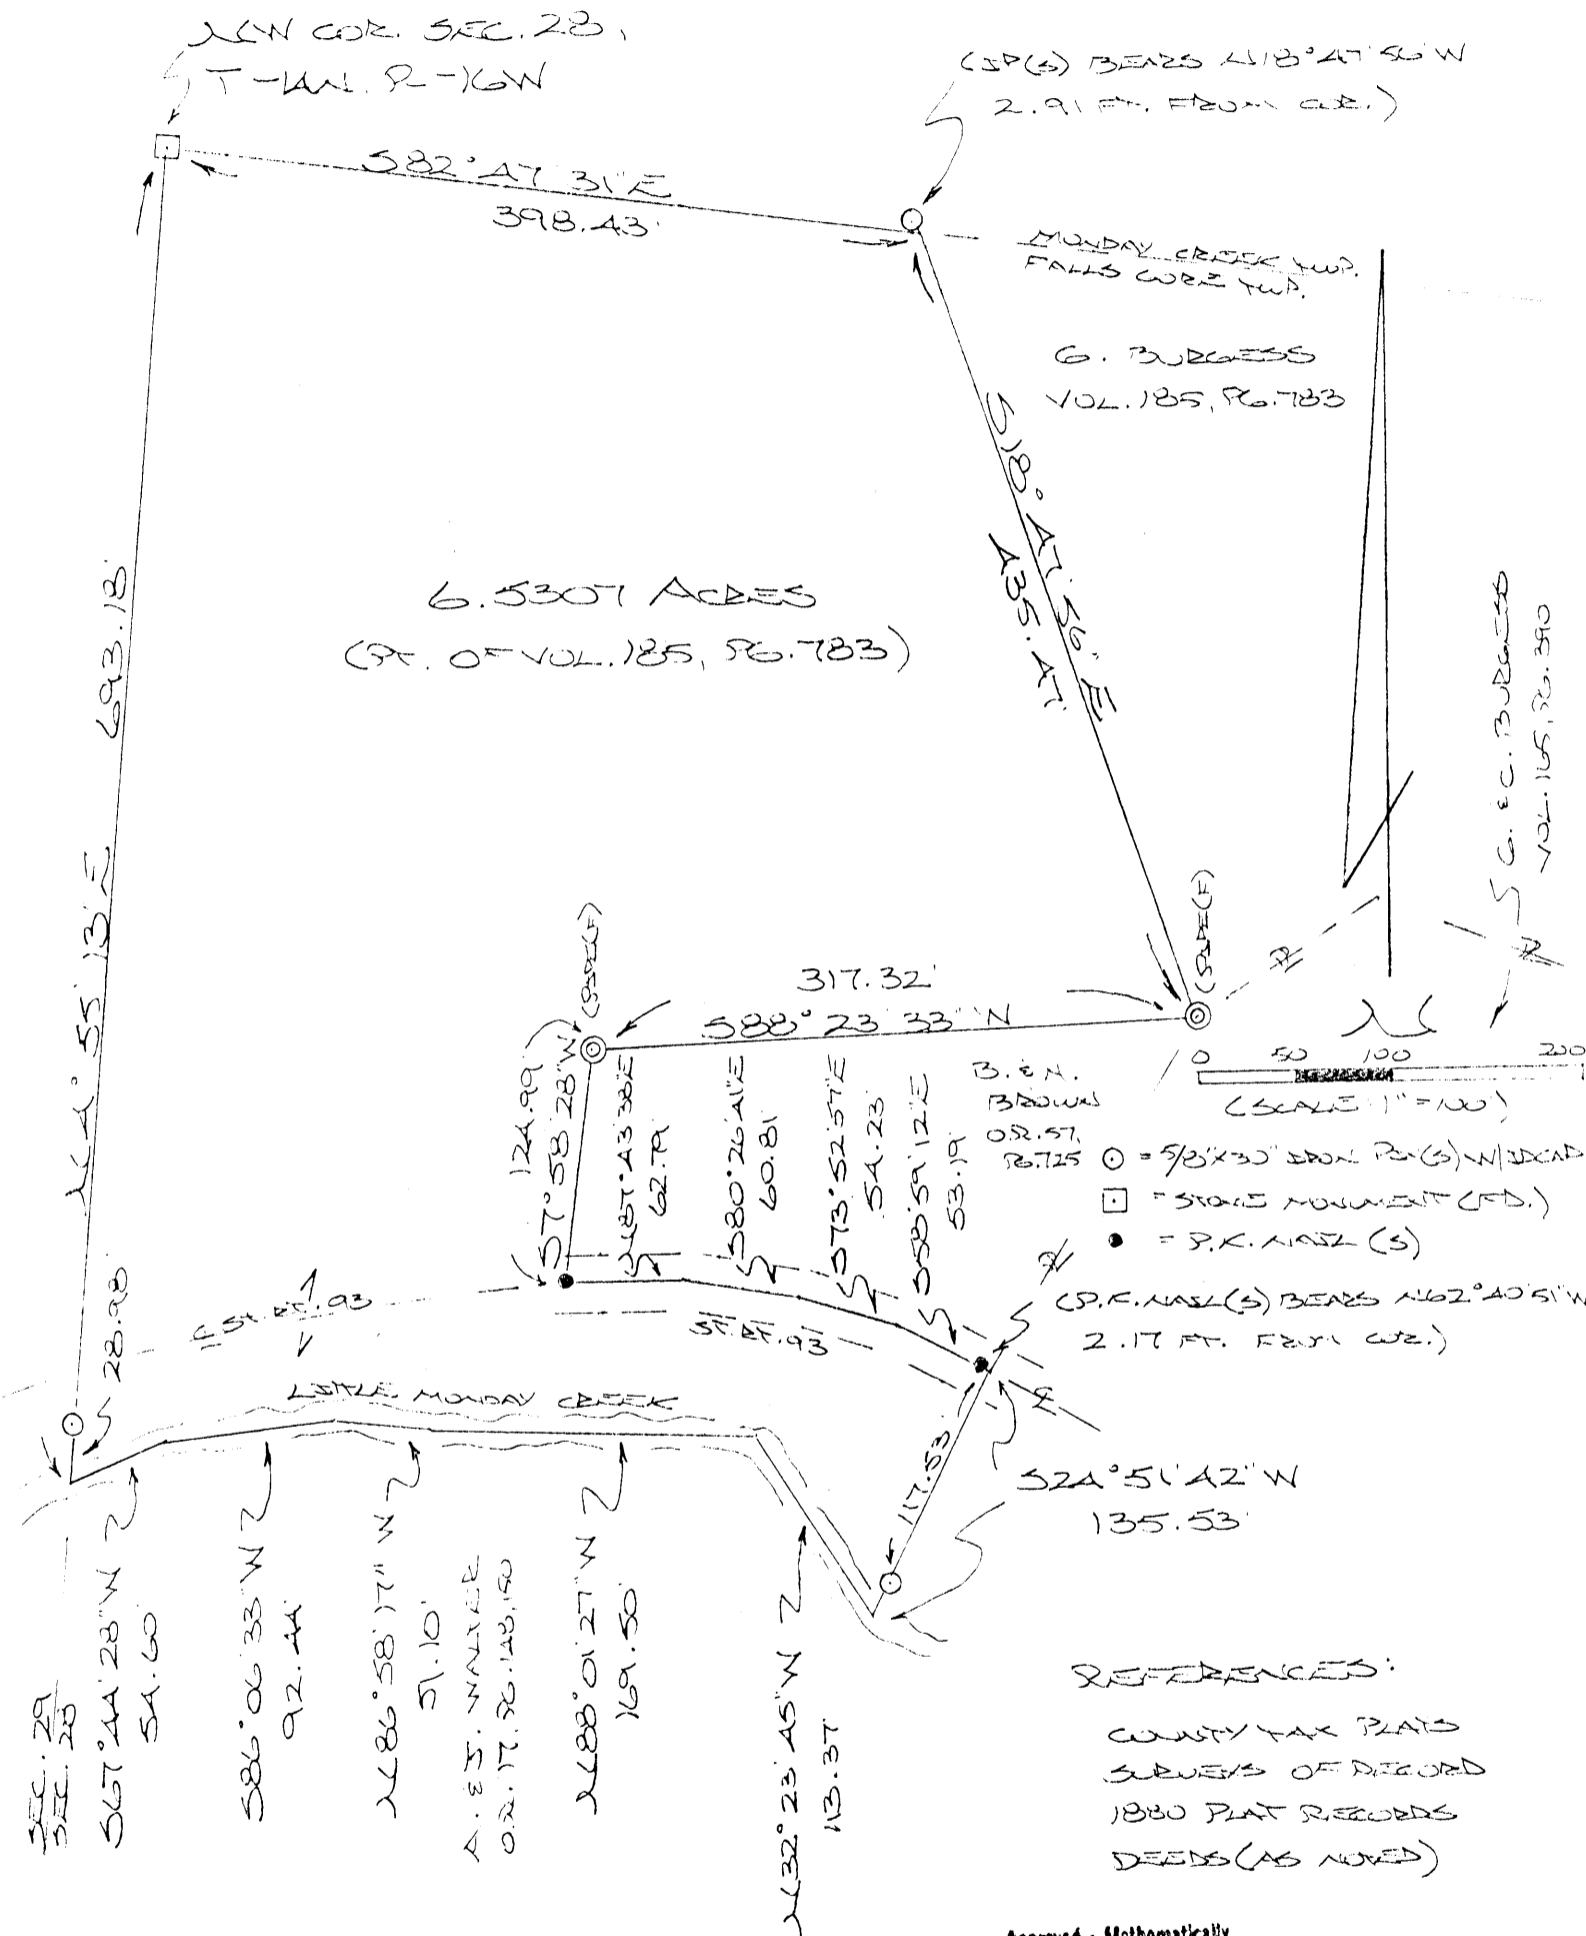 NW COR. SEC. 28,
T-14N. R-16W
(IP(S) BEARS N18°47'56"W
2.91 FT. FROM COR.)
S82°47'31"E
398.43'
MONDAY CREEK TWP.
FALLS GORE TWP.
G. BURGESS
VOL. 185, PG. 783
S18°47'56"E
435.47'
6.5307 ACRES
(PT. OF VOL. 185, PG. 783)
N4°55'13"E 693.18'
G. & C. BURGESS
VOL. 165, PG. 390
(PIPE(F)
(PIPE(F)
317.32'
S88°23'33"W
124.99'
S7°58'28"W
N87°43'38"E
62.79'
S80°26'41"E
60.81'
S73°52'57"E
54.23'
S58°59'12"E
53.19'
B. & N.
BROWN
O.R. 57,
PG. 725
N
0 50 100 200
(SCALE: 1"=100')
= 5/8"X30" IRON PIN(S) W/IDCAP
= STONE MONUMENT (FD.)
= P.K. NAIL (S)
(P.K. NAIL(S) BEARS N62°40'51"W
2.17 FT. FROM COR.)
℄ ST. RT. 93
ST. RT. 93
28.98'
LITTLE MONDAY CREEK
117.53'
S24°51'42"W
135.53'
SEC. 29
SEC. 28
S67°44'28"W
54.60'
S86°06'33"W
92.44'
N86°58'17"W
51.10'
A. & J. WALTER
O.R. 17, PG. 148,150
N88°01'27"W
169.50'
N32°23'45"W
113.37'
REFERENCES:
COUNTY TAX PLATS
SURVEYS OF RECORD
1880 PLAT RECORDS
DEEDS (AS NOTED)
Approved - Mathematically